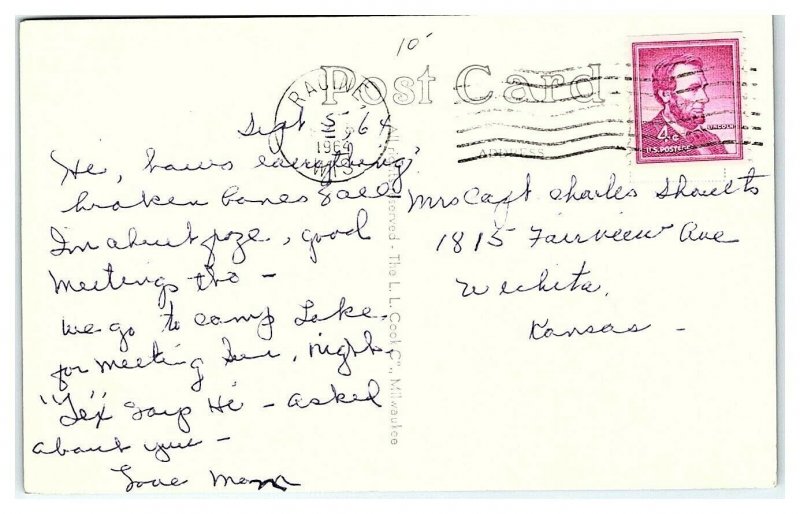 10
Post Card
RACINE,
WIS
1964
ADDRESS
4¢
LINCOLN
U.S. POSTAGE
Sept 5 - 64
Hi, hows everything,
broken bones & all
Im about froze, good
meetings tho -
we go to camp Lake.
for meeting Sun, night.
"Tex says Hi - asked
about you -
Love Mom
Mrs Capt Charles
1815 Fairview Ave
Wichita,
Kansas -
All rights reserved - The L. L. Cook Co., Milwaukee